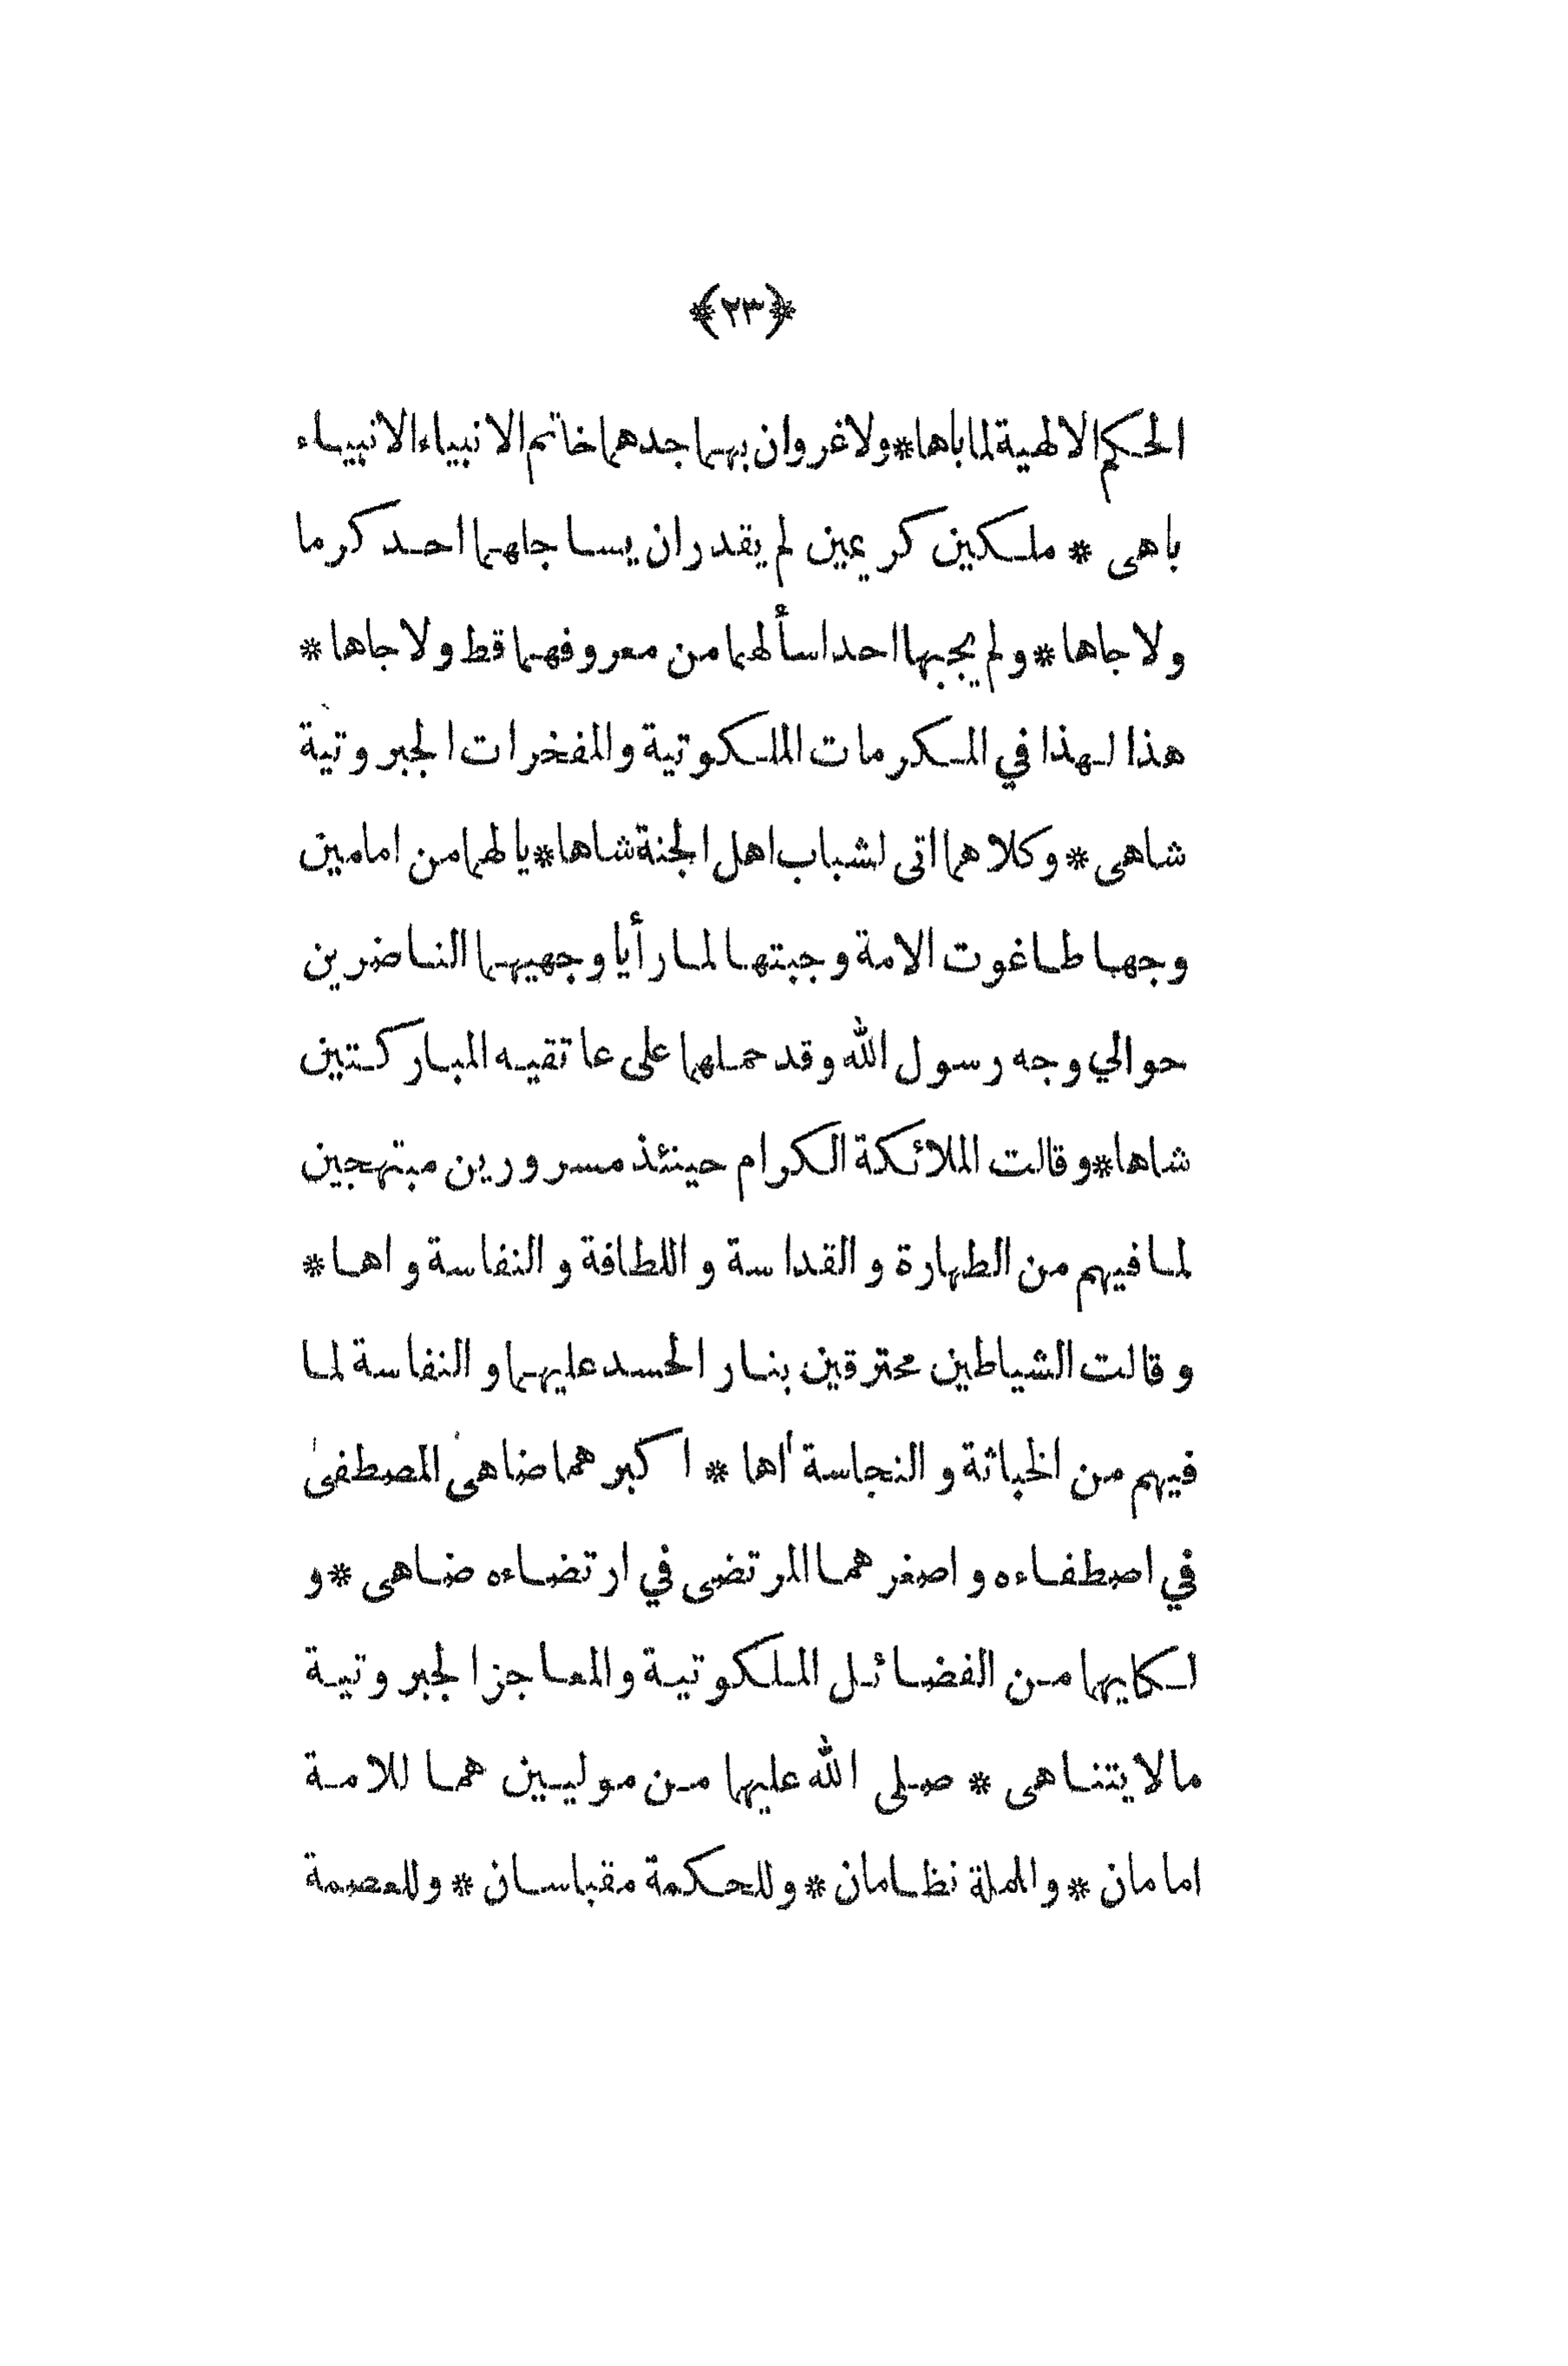 ﴿٢٣﴾
الحكم الالهية لما باها * ولا غروان بهما جدهما خاتم الانبياء الانبياء
باهى * ملكين كريمين لم يقدر ان يساجلهما احد كرما
ولا جاها * ولم يجبها احدا سألهما من معروفهما قط ولا جاها *
هذا لهذا في المكرمات الملكوتية والمفخرات الجبروتية
شاهى * وكلاهما اتى لشباب اهل الجنة شاها * يالهما من امامين
وجها طاغوت الامة وجبتها لما رأيا وجهيهما الناضرين
حوالي وجه رسول الله وقد حملهما على عاتقيه المباركتين
شاها * وقالت الملائكة الكرام حينئذ مسرورين مبتهجين
لما فيهم من الطهارة و القداسة و اللطافة و النفاسة و اها *
و قالت الشياطين محترقين بنار الحسد عليهما و النفاسة لما
فيهم من الخباثة و النجاسة اٰها * اكبر هما ضاهىٰ المصطفىٰ
في اصطفاءه و اصغر هما المرتضى في ارتضاءه ضاهى * و
لكليهما من الفضائل الملكوتية والمعاجز الجبروتية
مالا يتناهى * صلى الله عليهما من موليين هما للامة
امامان * والملة نظامان * وللحكمة مقباسان * وللعصمة